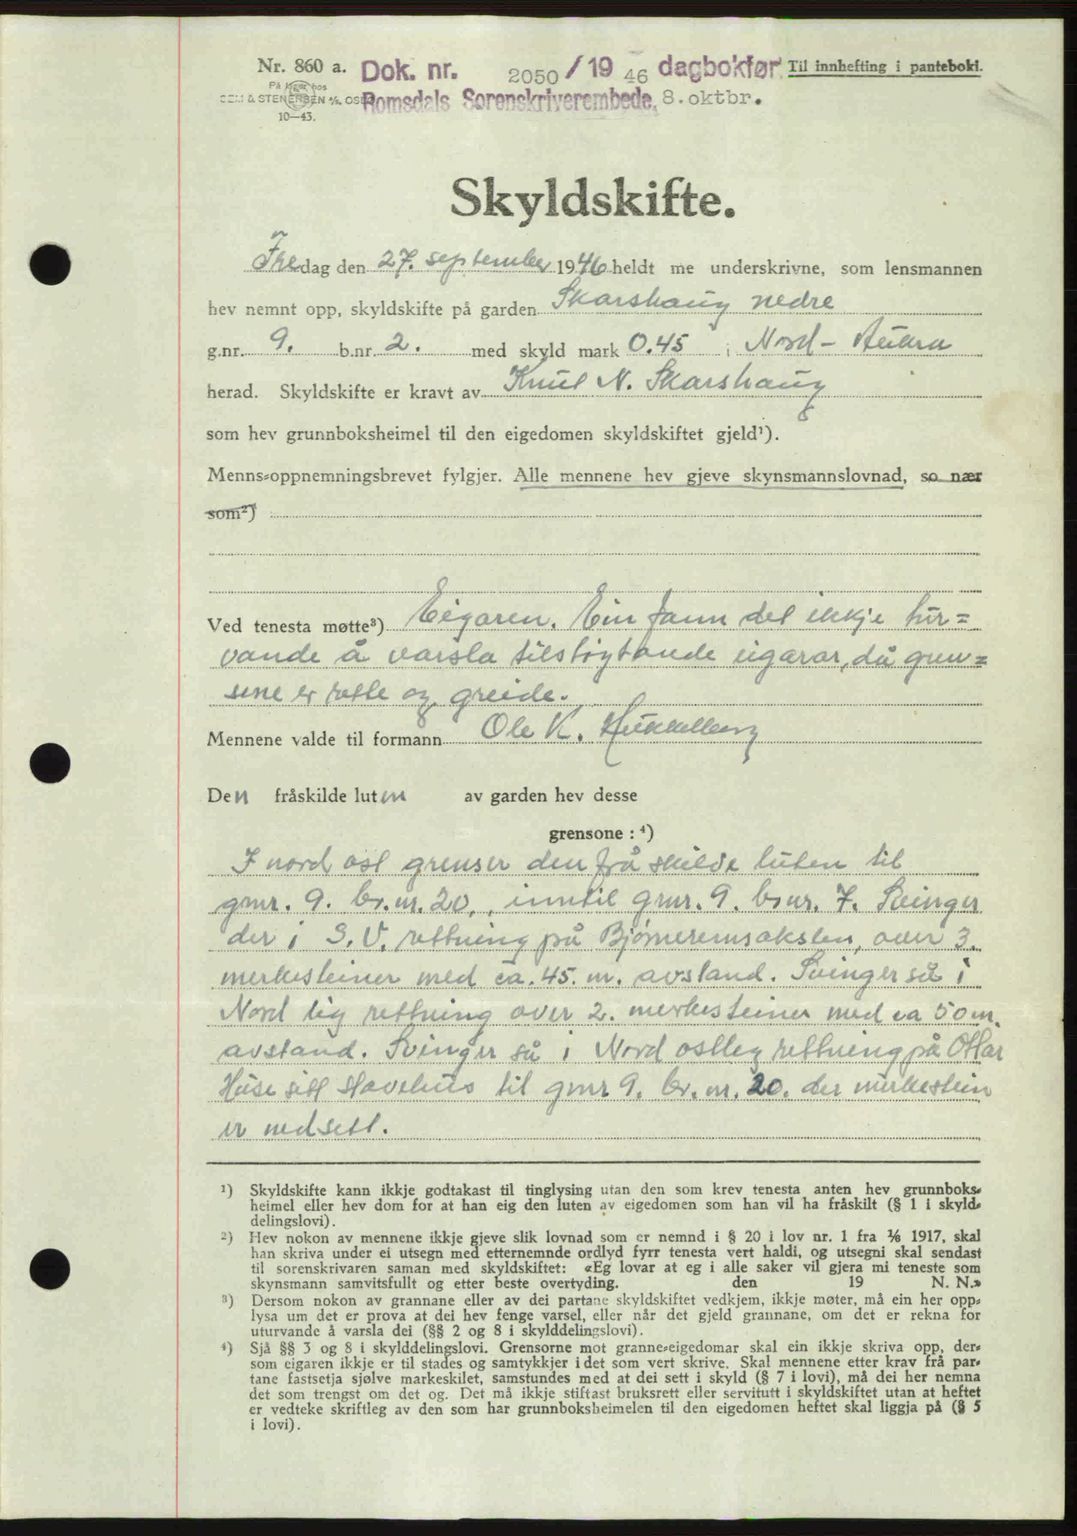 Nr. 860 a. Dok. nr. 2050 / 19 46 dagbokført Til innhefting i pantebok.
På lager hos
SEM & STENERSEN A/S, OSLO Romsdals Sorenskriverembede, 8. oktbr.
10—43.
Skyldskifte.
Fredag den 27. september 1946 heldt me underskrivne, som lensmannen
hev nemnt opp, skyldskifte på garden Skarshaug nedre
g.nr. 9. b.nr. 2. med skyld mark 0.45 i Nord-Aukra
herad. Skyldskifte er kravt av Knut N. Skarshaug
som hev grunnboksheimel til den eigedomen skyldskiftet gjeld¹).
Menns-oppnemningsbrevet fylgjer. Alle mennene hev gjeve skynsmannslovnad, so nær
som²)
Ved tenesta møtte³) Eigaren. Ein fann det ikkje tur=
vande å varsla tilstøytande eigarar, då gren=
sene er rette og greide.
Mennene valde til formann Ole K. Hukkelberg
Den fråskilde luten av garden hev desse
grensone : ⁴)
I nord ost grenser den frå skilde luten til
gmr. 9. br. nr. 20., inntil gmr. 9. brnr. 7. Svinger
der i S.V. rettning på Bjørneremsakslen, over 3.
merkesteiner med ca. 45. m. avstand. Svinger så i
Nord lig rettning over 2. merkesteiner med ca 50 m.
avstand. Svinger så i Nord ostleg rettning på Ottar
Huse sitt stovehus til gmr 9. br. nr. 20. der merkestein
er nedsett.
¹) Skyldskifte kann ikkje godtakast til tinglysing utan den som krev tenesta anten hev grunnboks-
heimel eller hev dom for at han eig den luten av eigedomen som han vil ha fråskilt (§ 1 i skyld-
delingslovi).
²) Hev nokon av mennene ikkje gjeve slik lovnad som er nemnd i § 20 i lov nr. 1 fra ⅙ 1917, skal
han skriva under ei utsegn med etternemnde ordlyd fyrr tenesta vert haldi, og utsegni skal sendast
til sorenskrivaren saman med skyldskiftet: «Eg lovar at eg i alle saker vil gjera mi teneste som
skynsmann samvitsfullt og etter beste overtyding. den 19 N. N.»
³) Dersom nokon av grannane eller av dei partane skyldskiftet vedkjem, ikkje møter, må ein her opp-
lysa um det er prova at dei hev fenge varsel, eller når det gjeld grannane, om det er rekna for
uturvande å varsla dei (§§ 2 og 8 i skylddelingslovi).
⁴) Sjå §§ 3 og 8 i skylddelingslovi. Grensorne mot granne-eigedomar skal ein ikkje skriva opp, der-
som eigaren ikkje er til stades og samtykkjer i det som vert skrive. Skal mennene etter krav frå par-
tane fastsetja sjølve markeskilet, samstundes med at dei sett i skyld (§ 7 i lovi), må dei her nemna
det som trengst om det og. Det må ikkje stiftast bruksrett eller servitutt i skyldskiftet utan at heftet
er vedteke skriftleg av den som har grunnboksheimelen til den eigedomen heftet skal liggja på (§ 5
i lovi).